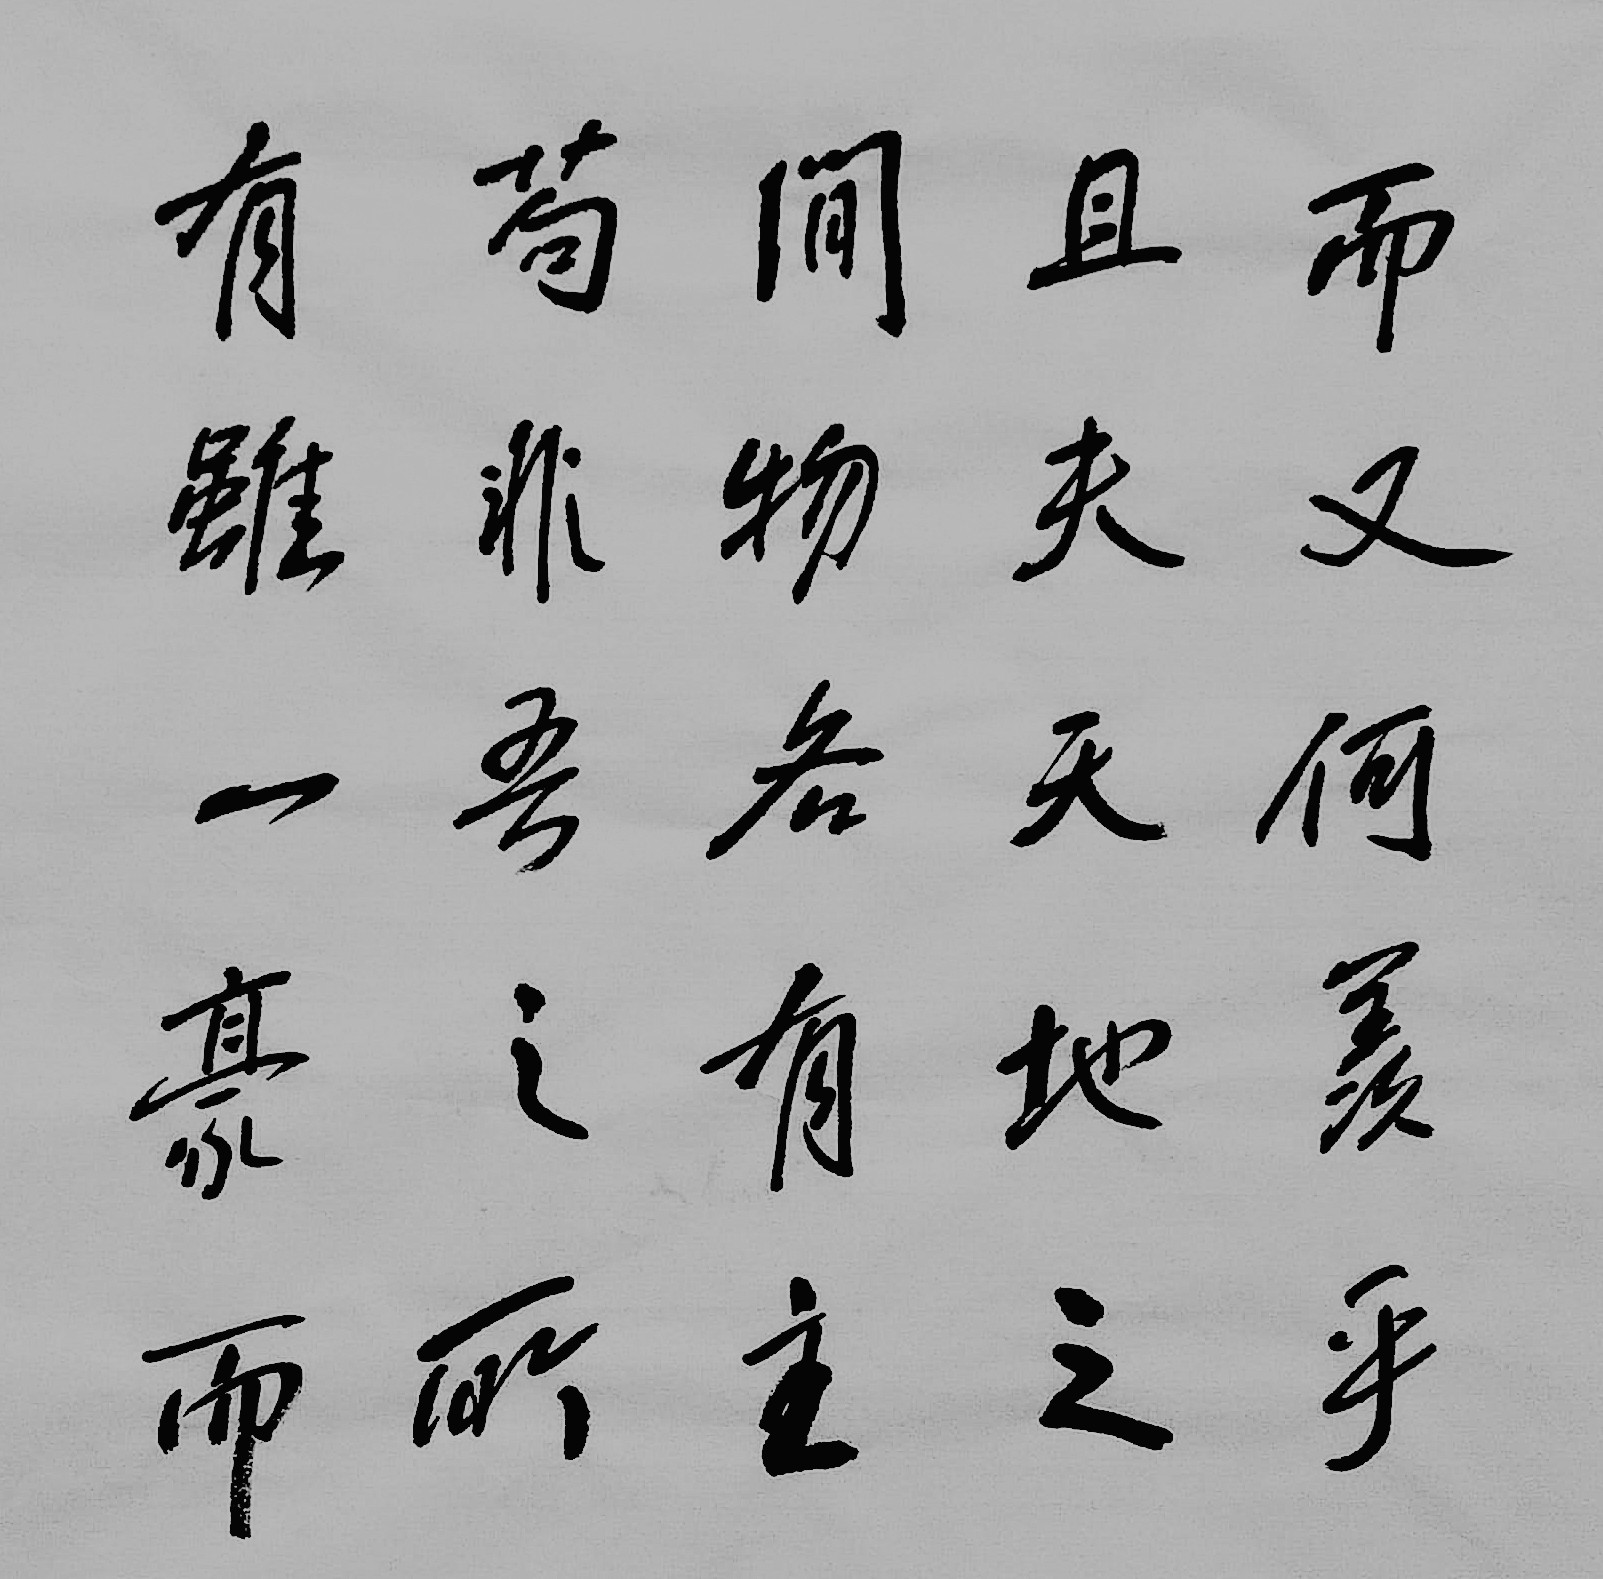 而又何羨乎
且夫天地之
間物各有主
苟非吾之所
有雖一豪而